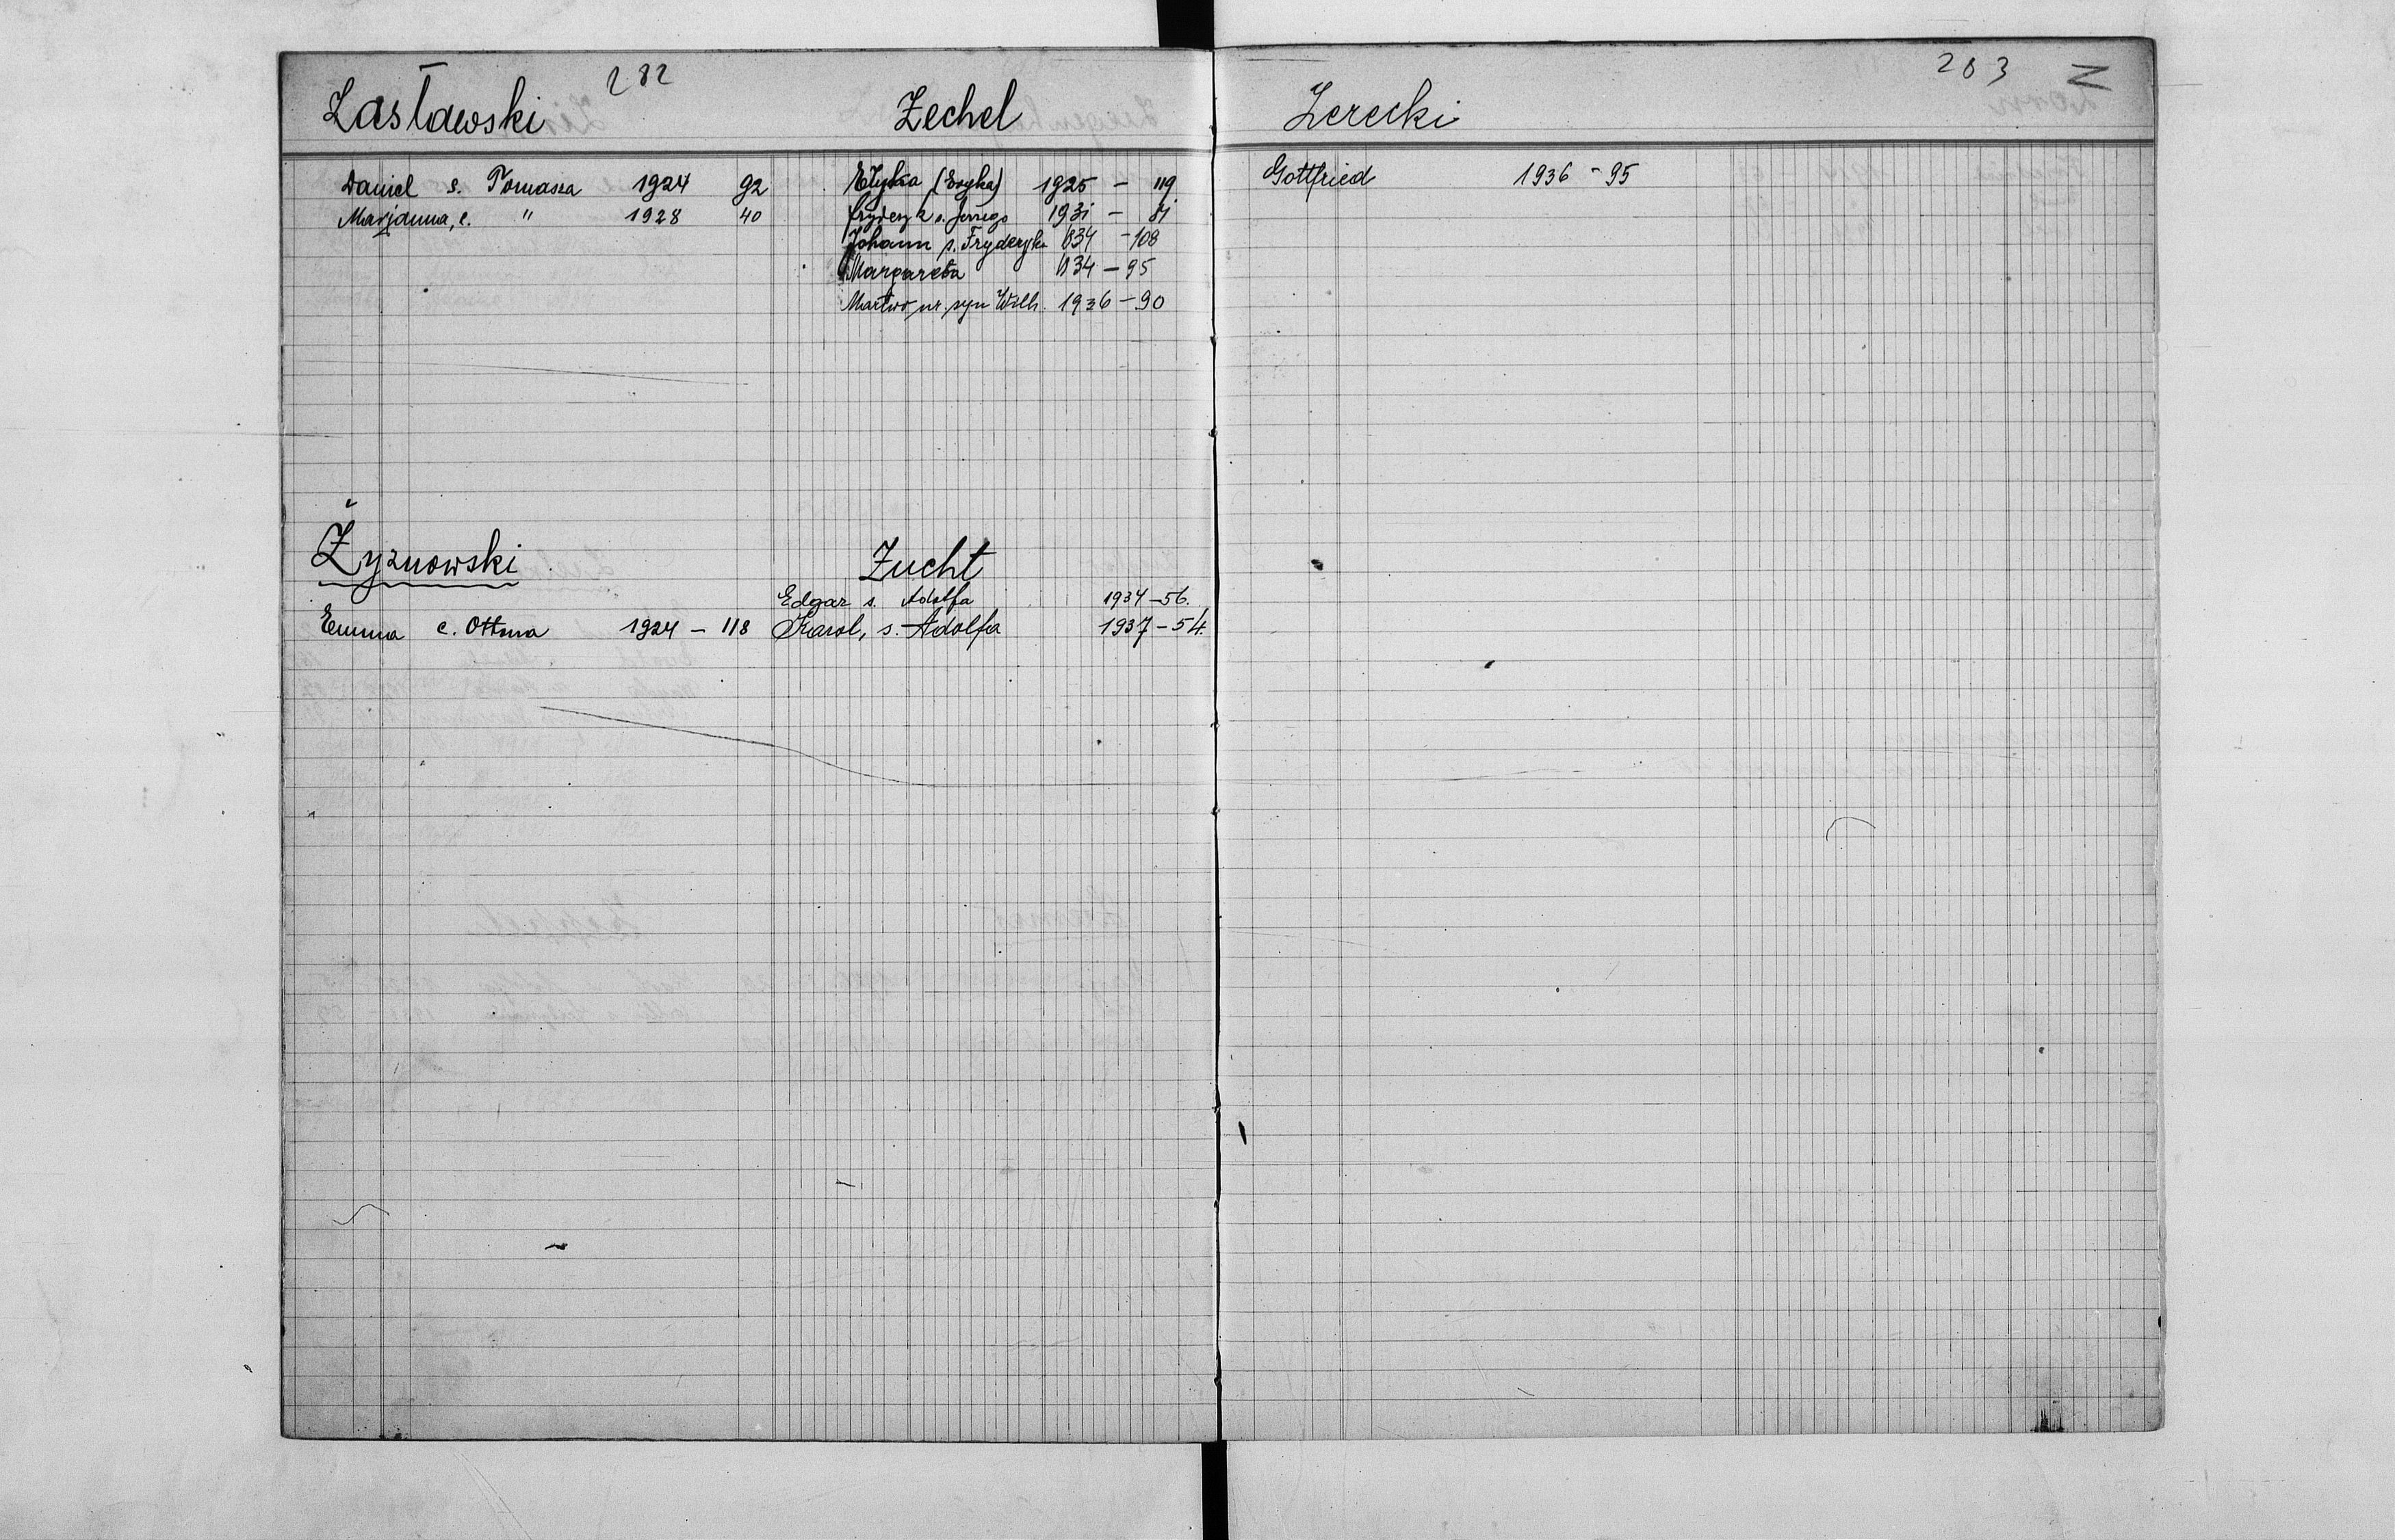 282
Zasławski
Daniel s. Tomasza 1924 92
Marjanna, c. " 1928 40
Zechel
Edyta (Eryka) 1925 - 119
Fryderyk s. Jerzego 1931 - 81
Johann s. Fryderyka 1934 - 108
Margareta 1934 - 95
Martwo ur. syn Wilh. 1936 - 90
Żyznowski
Emma c. Ottona 1924 - 118
Zucht
Edgar s. Adolfa 1934 - 56.
Karol, s. Adolfa 1937 - 54.
283 Z
Zerecki
Gottfried 1936 - 95